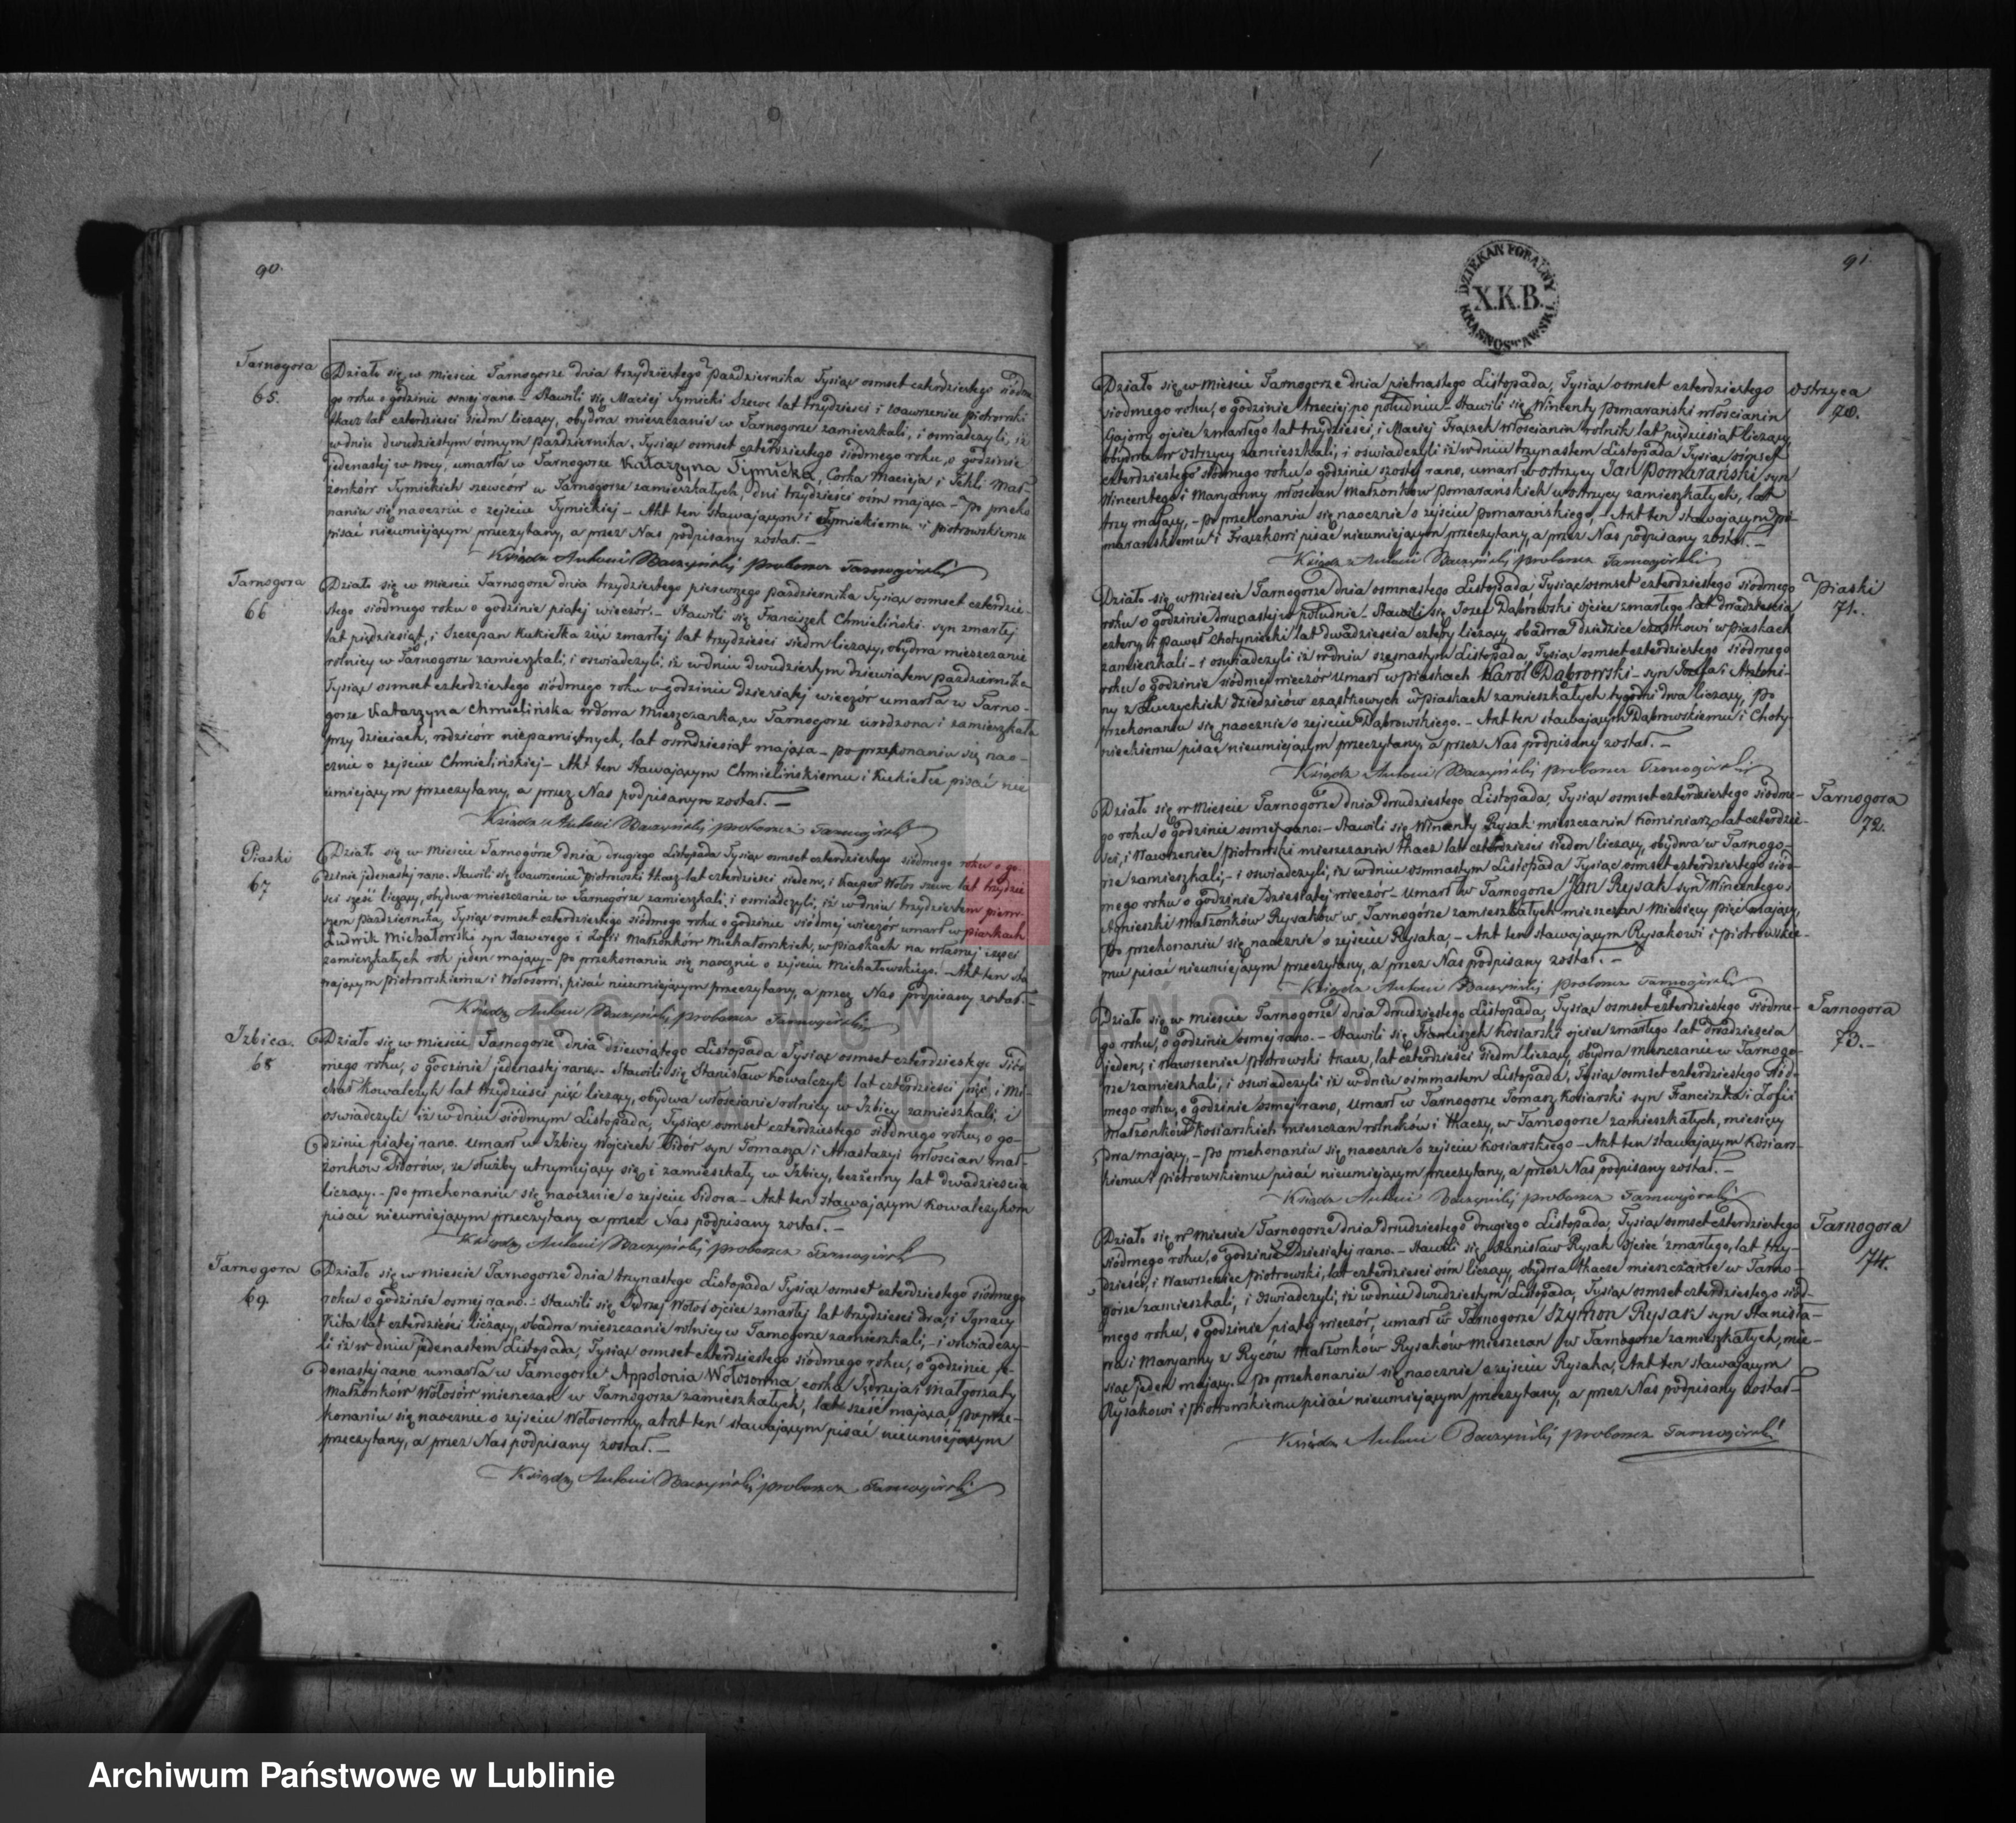 90.
Tarnogora
65.
Działo się w mieście Tarnogorze dnia trzydziestego Października Tysiąc osmset czterdziestego siodme-
go roku o godzinie osmej rano. – Stawili się Maciej Tymicki Szewc lat trzydzieści i Wawrzeniec Piotrowski
tkacz lat czterdzieści siedm liczący, obydwa mieszczanie w Tarnogorze zamieszkali, i oswiadczyli, iż
w dniu dwudziestym osmym Października, Tysiąc osmset czterdziestego siodmego roku, o godzinie
jedenastej w nocy, umarła w Tarnogorze Katarzyna Tymicka, Corka Macieja i Tekli Mał-
żonków Tymickich szewców w Tarnogorze zamieszkałych, dni trzydzieści osm mająca – Po przeko
naniu się naocznie o zejściu Tymickiej – Akt ten stawającym i Tymickiemu i Piotrowskiemu
pisać nieumiejącym przeczytany, a przez Nas podpisany został. –
Ksiądz Antoni Baczyński proboszcz Tarnogórski
Tarnogora
66
Działo się w mieście Tarnogorze dnia trzydziestego pierwszego Października Tysiąc osmset czterdzie-
stego siodmego roku o godzinie piątej wieczór. – Stawili się Franciszek Chmieliński syn zmarłej
lat piędziesiąt, i Szczepan Kukiełka zięć zmarłej lat trzydzieści siedm liczący, obydwa mieszczanie
rolnicy w Tarnogorze zamieszkali, i oswiadczyli, iż w dniu dwudziestym dziewiątem Października
Tysiąc osmset czterdziestego siódmego roku o godzinie dziesiątej wieczór umarła w Tarno-
gorze Katarzyna Chmielińska wdowa Mieszczanka, w Tarnogorze urodzona i zamieszkała
przy dzieciach, rodziców niepamiętnych, lat osmdziesiąt mająca – po przekonaniu się nao-
cznie o zejściu Chmielińskiej – Akt ten stawającym Chmielińskiemu i Kukiełce pisać nie
umiejącym przeczytany, a przez Nas podpisanym został. –
Ksiądz Antoni Baczyński proboszcz Tarnogórski
Piaski
67
Działo się w mieście Tarnogórze dnia drugiego Listopada Tysiąc osmset czterdziestego siodmego roku o go-
dzinie jedenastej rano. Stawili się Wawrzeniec Piotrowski tkacz lat czterdzieści siedem, i Kacper Wołos szewc lat trzydzie
ści sześć liczący, obydwa mieszczanie w Tarnogórze zamieszkali, i oswiadczyli, iż w dniu trzydziestem pierw-
szem Października, Tysiąc osmset czterdziestego siodmego roku o godzinie siódmej wieczór umarł w piaskach
Ludwik Michałowski syn Xawerego i Zofii Małżonków Michałowskich, w piaskach na własnej części
zamieszkałych rok jeden mający – po przekonaniu się naocznie o zejściu Michałowskiego. – Akt ten sta
wającym Piotrowskiemu i Wołosowi, pisać nieumiejącym przeczytany, a przez Nas podpisany został. –
Ksiądz Antoni Baczyński proboszcz Tarnogórski
Izbica.
68
Działo się w mieście Tarnogorze dnia dziewiątego Listopada Tysiąc osmset czterdziestego siód
mego roku, o godzinie jedenastej rano. – Stawili się Stanisław Kowalczyk lat czterdzieści pięć, i Mi-
chał Kowalczyk lat trzydzieści pięć liczący, obydwa włościanie rolnicy w Izbicy zamieszkali, i
oswiadczyli iż w dniu siódmym Listopada, Tysiąc osmset czterdziestego siodmego roku, o go-
dzinie piątej rano. umarł w Izbicy Wojciech Sidór syn Tomasza i Anastazyi włościan mał-
żonkow Sidorów, ze służby utrzymujący się, i zamieszkały w Izbicy, bezżenny lat dwadzieścia
liczący. – po przekonaniu się naocznie o zejściu Sidora – Akt ten stawającym Kowalczykom
pisać nieumiejącym przeczytany a przez Nas podpisany został. –
Ksiądz Antoni Baczyński proboszcz Tarnogórski
Tarnogora
69.
Działo się w mieście Tarnogorze dnia trzynastego Listopada Tysiąc osmset czterdziestego siódmego
roku o godzinie osmej rano. – Stawili się Jędrzej Wołos ojciec zmarłej lat trzydzieści dwa, i Ignacy
Kita lat czterdzieści liczący, obadwa mieszczanie rolnicy w Tarnogorze zamieszkali, – i oswiadczy-
li iż w dniu jedenastem Listopada, Tysiąc osmset czterdziestego siódmego roku, o godzinie je-
denastej rano umarła w Tarnogorze Appolonia Wołosowna corka Jędrzeja i Małgorzaty
Małżonków Wołosów mieszczan w Tarnogorze zamieszkałych, lat sześć mająca, po prze-
konaniu się naocznie o zejściu Wołosowny, a Akt ten stawającym pisać nieumiejącym
przeczytany, a przez Nas podpisany został. –
Ksiądz Antoni Baczyński proboszcz Tarnogórski
91.
DZIEKAN FORALNY
X.K.B.
KRASNOSTAWSKI
Działo się w mieście Tarnogorze dnia pietnastego Listopada, Tysiąc osmset czterdziestego
siodmego roku, o godzinie trzeciej po południu – Stawili się Wincenty Pomarański włościanin
Gajowy ojciec zmarłego lat trzydzieści, i Maciej Frączek włościanin rolnik lat pięćdziesiąt liczący,
obydwa w Ostrzycy zamieszkali, i oświadczyli iż w dniu trzynastem Listopada Tysiąc osmset
czterdziestego siodmego roku o godzinie szostej rano, umarł w Ostrzycy Jan Pomarański syn
Wincentego i Maryanny włościan Małżonków Pomarańskich w Ostrzycy zamieszkałych, lat
trzy mający, – po przekonaniu się naocznie o zejściu Pomarańskiego, – Akt ten stawającym Po-
marańskiemu i Frączkowi pisać nieumiejącym przeczytany, a przez Nas podpisany został. –
Ksiądz Antoni Baczyński proboszcz Tarnogórski
Ostrzyca
70.
Działo się w mieście Tarnogorze dnia osmnastego Listopada, Tysiąc osmset czterdziestego siodmego
roku o godzinie dwunastej w południe – Stawili się Jozef Dąbrowski ojciec zmarłego lat dwadzieścia
cztery, i Paweł Chotyniecki lat dwadzieścia cztery liczący obadwa dziedzice cząstkowi w piaskach
zamieszkali – i oswiadczyli iż w dniu szesnastym Listopada, Tysiąc osmset czterdziestego siódmego
roku o godzinie siódmej wieczór umarł w piaskach Karol Dąbrowski – syn Jozefa i Antoni-
ny z dziedziców cząstkowych w Piaskach zamieszkałych tygodni dwa liczący, po
przekonaniu się naocznie o zejściu Dąbrowskiego. – Akt ten stawającym Dąbrowskiemu i Choty-
nieckiemu pisać nieumiejącym przeczytany, a przez Nas podpisany został. –
Ksiądz Antoni Baczyński proboszcz Tarnogórski
Piaski
71.
Działo się w mieście Tarnogorze dnia dwudziestego Listopada, Tysiąc osmset czterdziestego siodme-
go roku o godzinie osmej rano. – Stawili się Wincenty Rysak mieszczanin Kominiarz lat czterdzie-
ści, i Wawrzeniec Piotrowski mieszczanin tkacz lat czterdzieści siedem liczący, obydwa w Tarnogo-
rze zamieszkali, – i oswiadczyli, iż w dniu osmnastym Listopada Tysiąc osmset czterdziestego siód-
mego roku o godzinie dziesiątej wieczór – umarł w Tarnogorze Jan Rysak syn Wincentego i
Agnieszki Małżonków Rysaków w Tarnogórze zamieszkałych mieszczan Miesięcy pięć mający,
po przekonaniu się naocznie o zejściu Rysaka, – Akt ten stawającym Rysakowi i Piotrowskie-
mu pisać nieumiejącym przeczytany, a przez Nas podpisany został. –
Ksiądz Antoni Baczyński proboszcz Tarnogórski
Tarnogora
72.
Działo się w mieście Tarnogorze dnia dwudziestego Listopada, Tysiąc osmset czterdziestego siodme-
go roku, o godzinie osmej rano. – Stawili się Franciszek Kosiarski ojciec zmarłego lat dwadzieścia
jeden, i Wawrzeniec Piotrowski tkacz, lat czterdzieści siedm liczący, obydwa mieszczanie w Tarnogo-
rze zamieszkali, i oswiadczyli iż w dniu osmnastem Listopada, Tysiąc osmset czterdziestego siód-
mego roku, o godzinie osmej rano, umarł w Tarnogorze Tomasz Kosiarski syn Franciszka i Zofii
Małżonków Kosiarskich mieszczan rolników i tkaczy, w Tarnogorze zamieszkałych, miesięcy
dwa mający, – po przekonaniu się naocznie o zejściu Kosiarskiego – Akt ten stawającym Kosiars-
kiemu i Piotrowskiemu pisać nieumiejącym przeczytany, a przez Nas podpisany został. –
Ksiądz Antoni Baczyński proboszcz Tarnogórski
Tarnogora
73. –
Działo się w mieście Tarnogorze dnia dwudziestego drugiego Listopada, Tysiąc osmset czterdziestego
siódmego roku, o godzinie dziesiątej rano. – Stawili się Stanisław Rysak ojciec zmarłego, lat trzy-
dzieści, i Wawrzeniec Piotrowski, lat czterdzieści osm liczący, obydwa tkacze mieszczanie w Tarno-
gorze zamieszkali, i oswiadczyli, iż w dniu dwudziestym Listopada, Tysiąc osmset czterdziestego siód-
mego roku, o godzinie piątej wieczór, umarł w Tarnogorze Szymon Rysak syn Stanisła-
wa i Maryanny z Ryców Małżonków Rysaków mieszczan w Tarnogorze zamieszkałych, mie-
siąc jeden mający. – po przekonaniu się naocznie o zejściu Rysaka, Akt ten stawającym
Rysakowi i Piotrowskiemu pisać nieumiejącym przeczytany, a przez Nas podpisany został –
Ksiądz Antoni Baczyński proboszcz Tarnogórski
Tarnogora
74.
Archiwum Państwowe w Lublinie